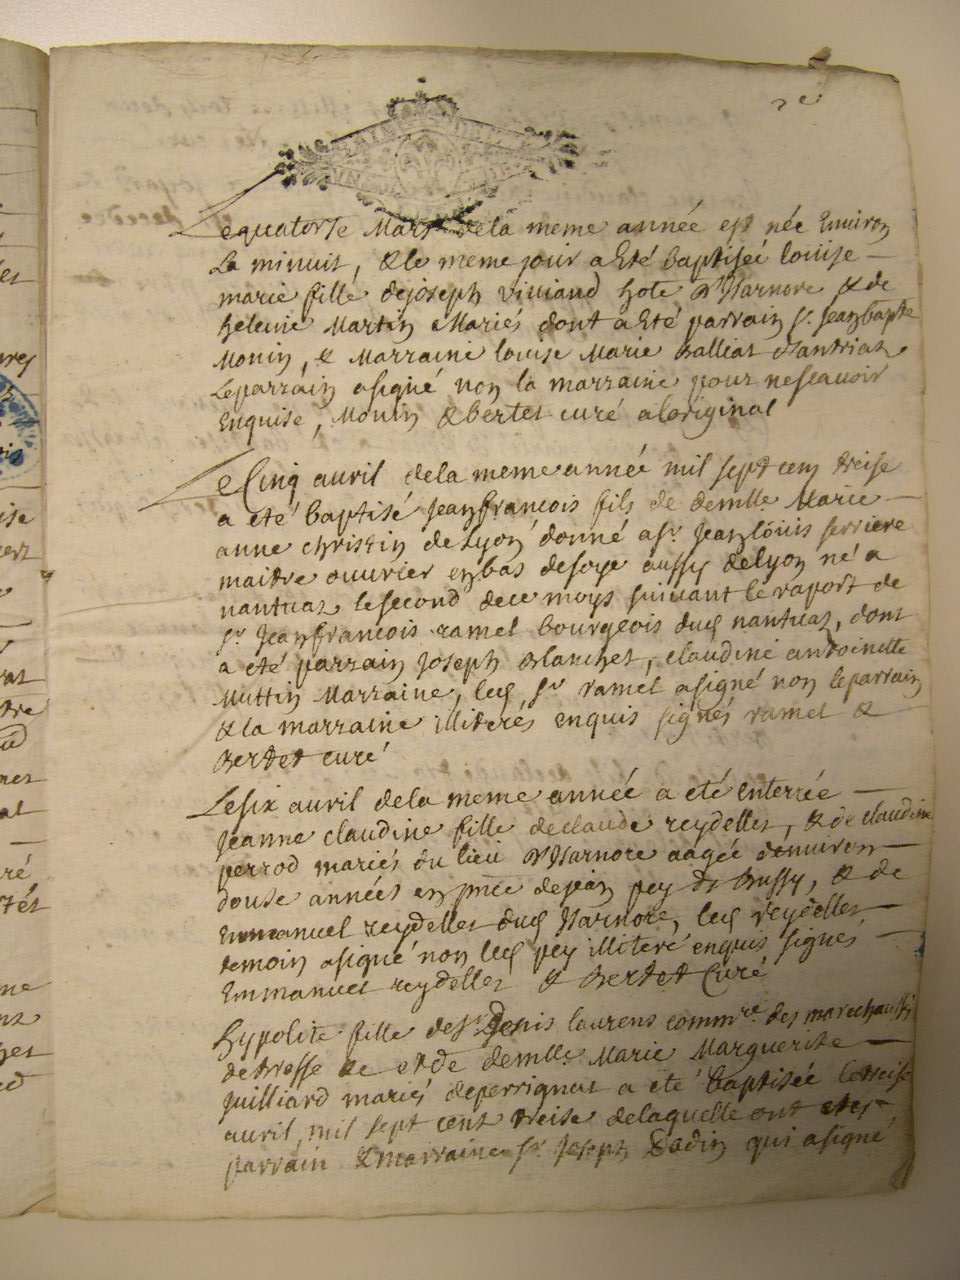 2e
Le quatorse Mars de la meme année est née Environ
La minuit, & le meme jour a Eté baptiseé louise
marie fille de joseph viuiand hote d'Isarnore & de
heleine Martin Mariés dont a Eté parrain sr. Jean bapte
Monin, & Marraine louise Marie Balliat
Le parrain a signé non la marraine pour ne scauoir
Enquise, Monin & bertet curé a loriginal
Le Cinq auril de la meme année mil sept cens treise
a eté baptisé jean francois fils de demlle. Marie
anne christin de Lyon donné a sr. Jean louis serriere
maitre ouurier en bas de soye aussy de lyon né a
nantuat le second de ce moys suiuant le raport de
sr. Jean francois ramel bourgeois dud nantuat, dont
a eté parrain joseph Blanchet, claudine antoinette
Muttin Marraine, led sr ramel a signé non le parrain
& la marraine illiterés enquis signés ramel &
Bertet curé
Le six auril de la meme année a eté enterrée
jeanne claudine fille de claude reydellet, & de claudine
perrod mariés du lieu d'Isarnore aagée denuiron
douse années en pnce de jean pey de Bussy, & de
Emmanuel reydellet dud Isarnore, led reydellet
temoin a signé non led pey illiteré enquis signés
Emmanuel reydellet & Bertet Curé
hypolite fille de sr. Denis laurens commre. des marechaussé
de bresse & et de demlle. Marie Marguerite
juilliard mariés de perrignat a eté baptisée le treise
auril, mil sept cent treise de laquelle ont eté
parrain & marraine sr. joseph Dadin qui a signé